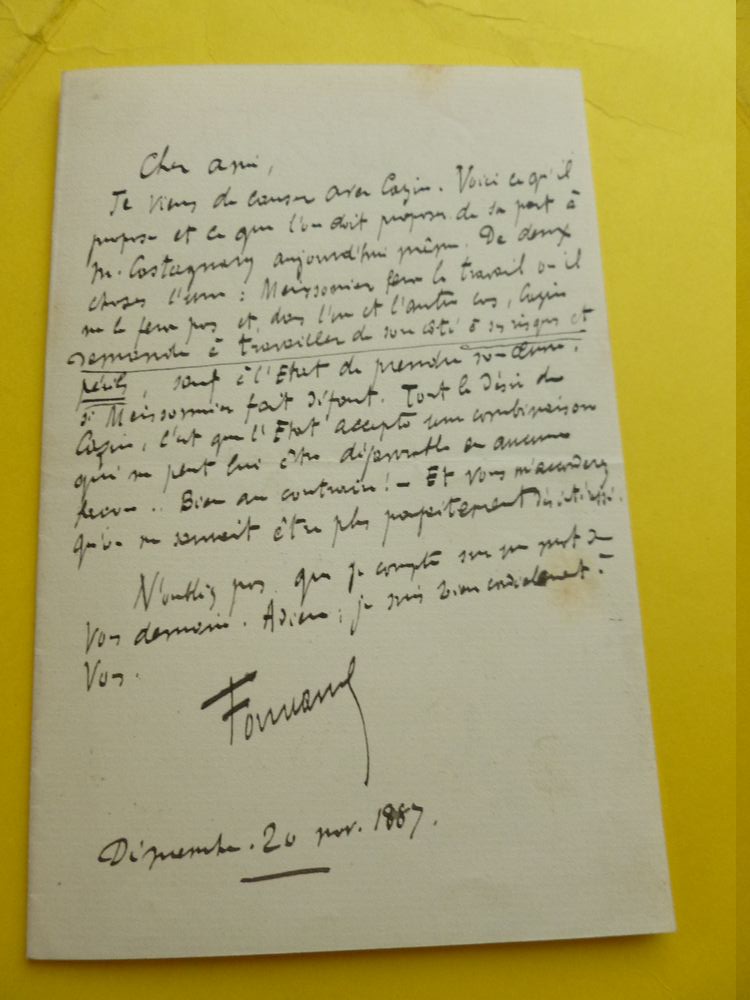 Cher ami,
Je viens de causer avec Cazin. Voici ce qu'il
propose et ce que l'on doit proposer de sa part à
M. Castagnary aujourd'hui même. De deux
choses l'une : Meissonier fera le travail ou il
ne le fera pas et, dans l'un et l'autre cas, Cazin
demande à travailler de son côté à ses risques et
périls, sauf à l'Etat de prendre son œuvre,
si Meissonnier fait défaut. Tout le désir de
Cazin, c'est que l'Etat accepte une combinaison
qui ne peut lui être défavorable en aucune
façon .. Bien au contraire! — Et vous m'accorderez
qu'on ne saurait être plus parfaitement désintéressé.
N'oubliez pas que je compte sur un mot de
vous demain. Adieu ; je suis bien cordialement à
vous.
Fourcaud
Dimanche. 20 nov. 1887.